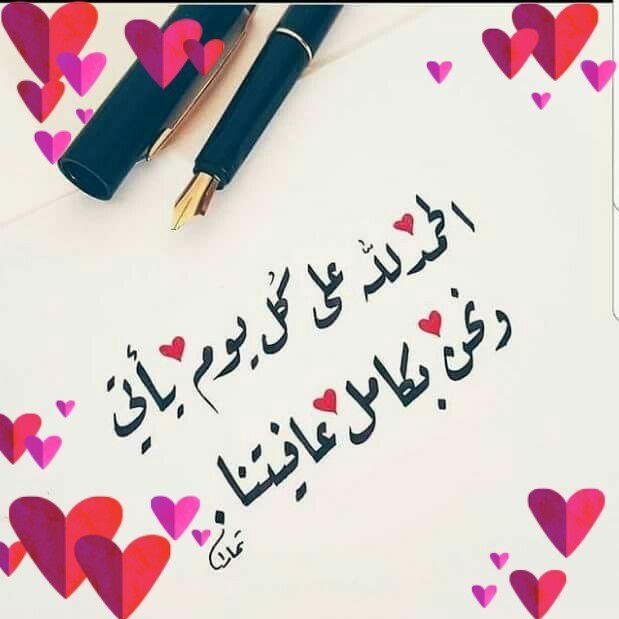 الحمد لله على كُل يوم يأتي
ونحن بكامل عافيتنا.